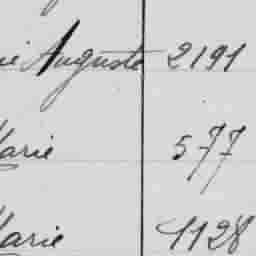 Auguste 2191
Marie 577
Marie 1128